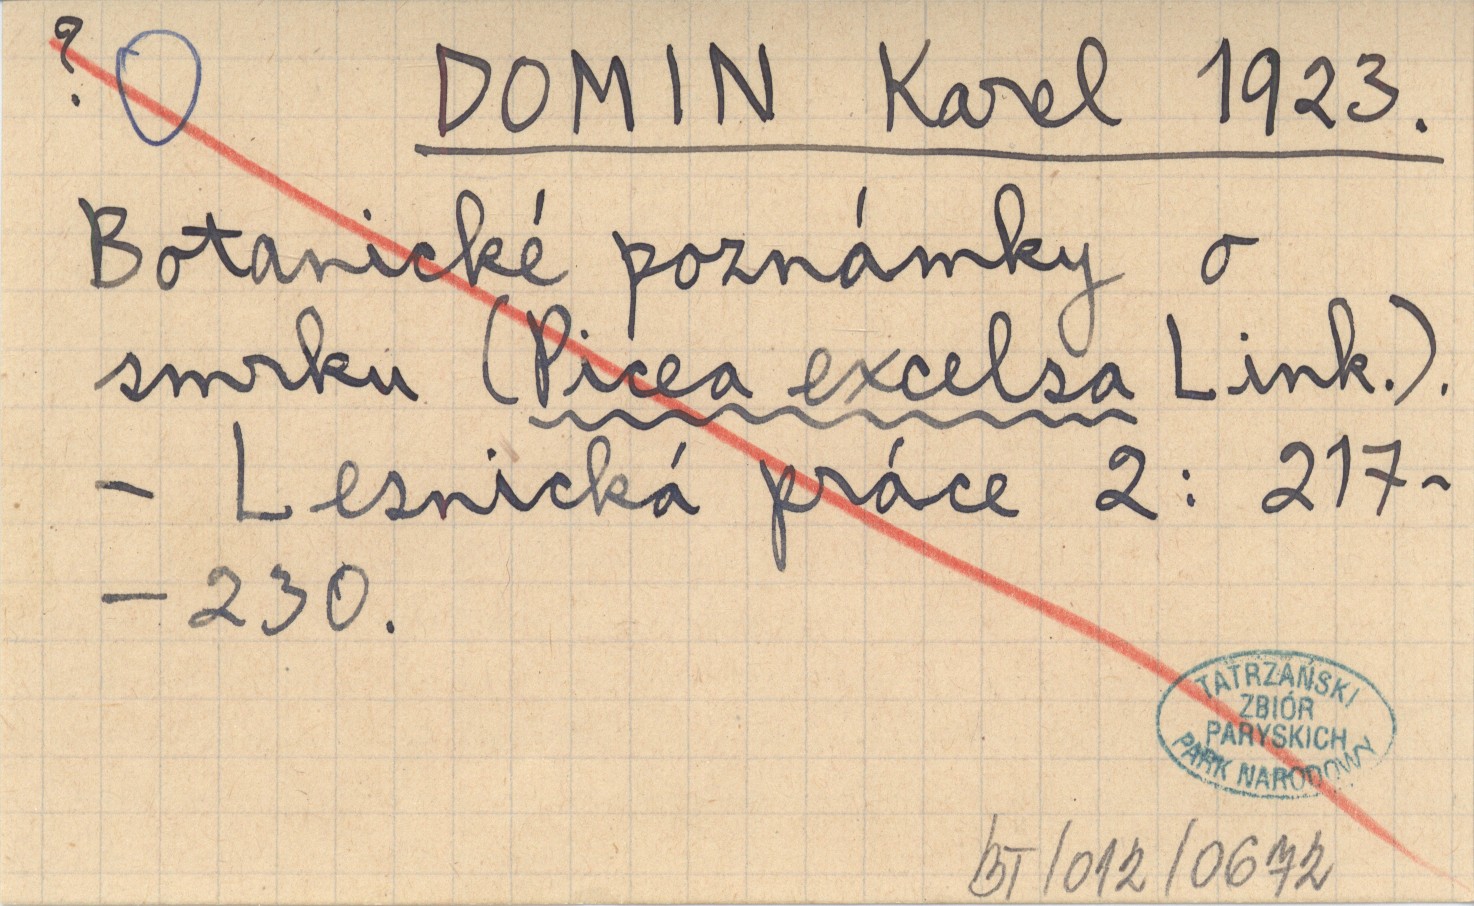 ?
DOMIN Karel 1923.
Botanické poznámky o
smrku (Picea excelsa Link.).
- Lesnická práce 2: 217-
- 230.
TATRZAŃSKI
ZBIÓR
PARYSKICH
PARK NARODOWY
BT/012/0672